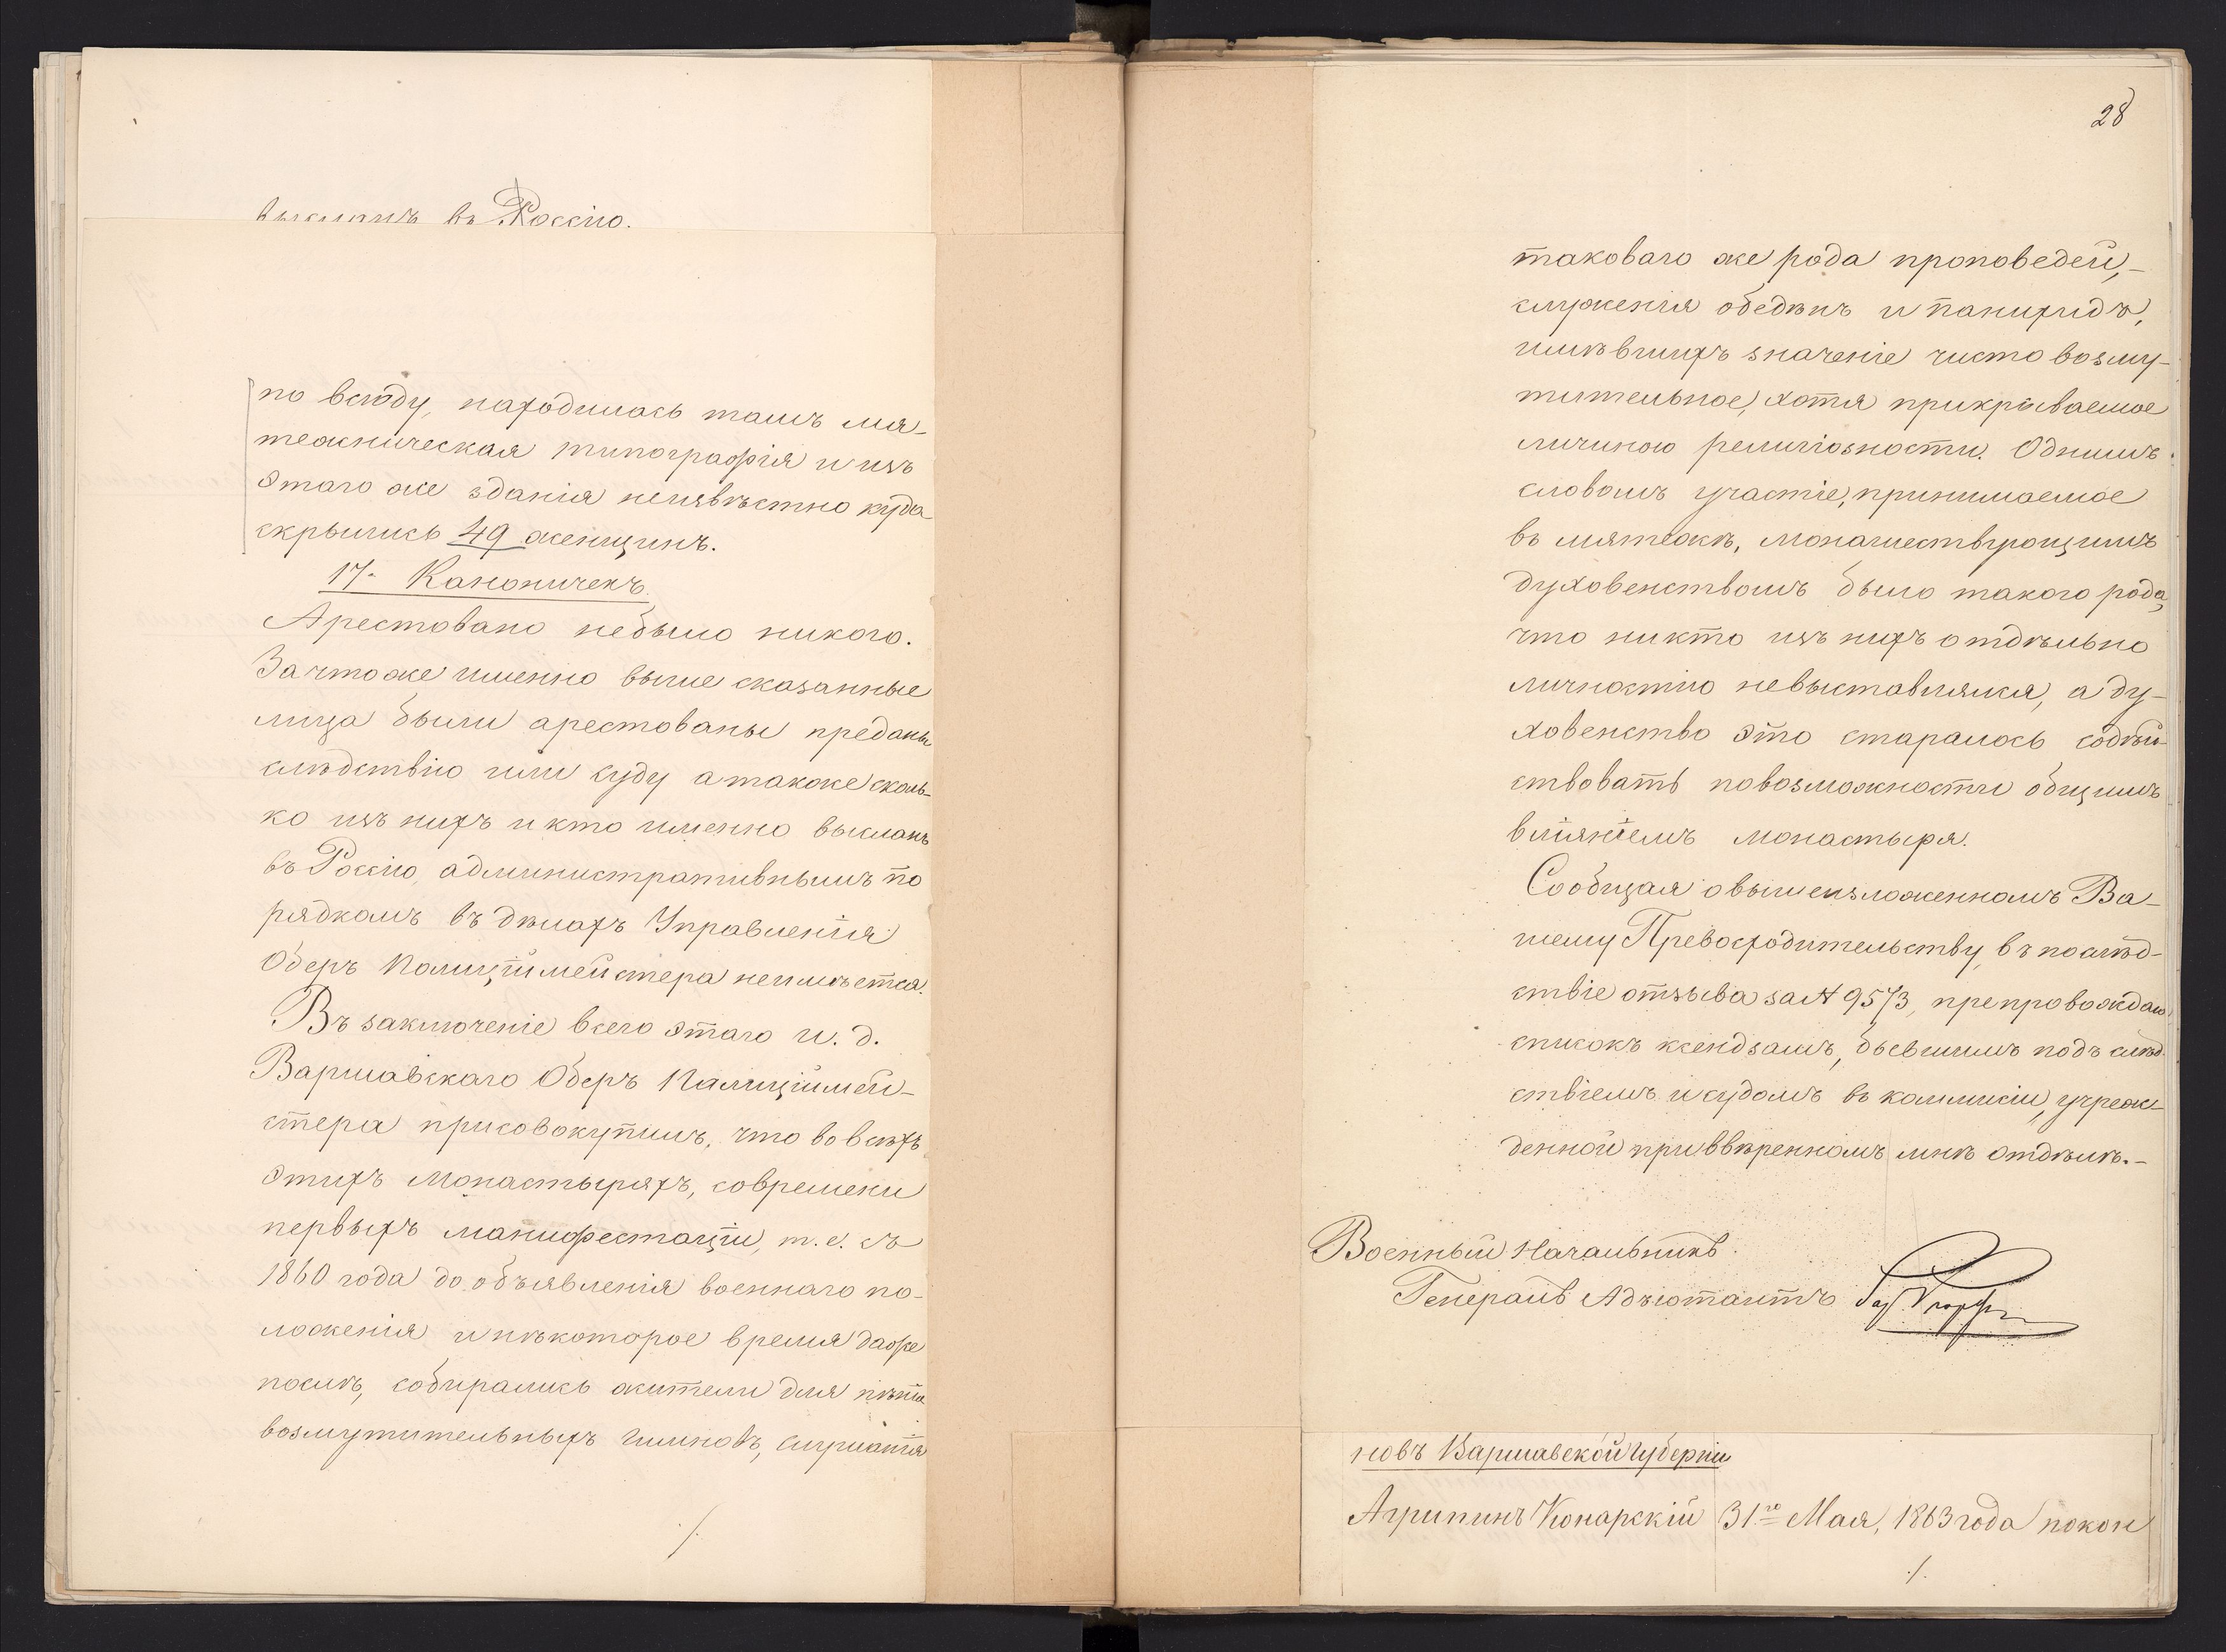 высланъ въ Россію.
по всюду, находилась тамъ мя-
тежническая типографія и изъ
этаго же зданія неизвѣстно куда
скрылись 49 женщинъ.
17. Каноничекъ.
Арестовано небыло никого.
За чтоже именно выше сказанные
лица были арестованы преданы
слѣдствію или суду атакже сколь-
ко изъ нихъ и кто именно высланъ
въ Россію, административнымъ по
рядкомъ въ дѣлахъ Управленія
Оберъ Полиціймейстера неимѣется.
Въ заключеніе всего этаго и. д.
Варшавскаго Оберъ Полиціймей-
стера присовокупилъ, что во всѣхъ
этихъ монастыряхъ, современи
первыхъ манифестацій, т. е. съ
1860 года до объявленія военнаго по-
ложенія и нѣкоторое время даже
послѣ, собирались жители для пѣнія
возмутительныхъ гимновъ, слушанія
./.
28
таковаго же рода проповедей,-
служенія обедѣнъ и панихидъ,
имѣвшихъ значеніе чисто возму-
тительное, хотя прикрываемое
личиною религіозности. Однимъ
словомъ участіе, принимаемое
въ мятежѣ, монашествующимъ
духовенствомъ было такого рода,
что никто изъ нихъ отдѣльно
личностію невыставлялся, а ду-
ховенство это старалось содѣй-
ствовать повозможности общимъ
вліяніемъ монастыря.
Сообщая овышеизложенномъ Ва-
шему Превосходительству, въ послѣд-
ствіе отзыва за № 9573, препровождаю
списокъ ксендзамъ, бывшимъ подъ слѣд-
ствіемъ и судомъ въ коммисіи, учреж-
денной при ввѣренномъ мнѣ отдѣлѣ.-
Военный Начальникъ
Генералъ Адъютантъ
новъ Варшавской Губерніи
Агрипинъ Конарскій 31го Мая, 1863 года покон
./.